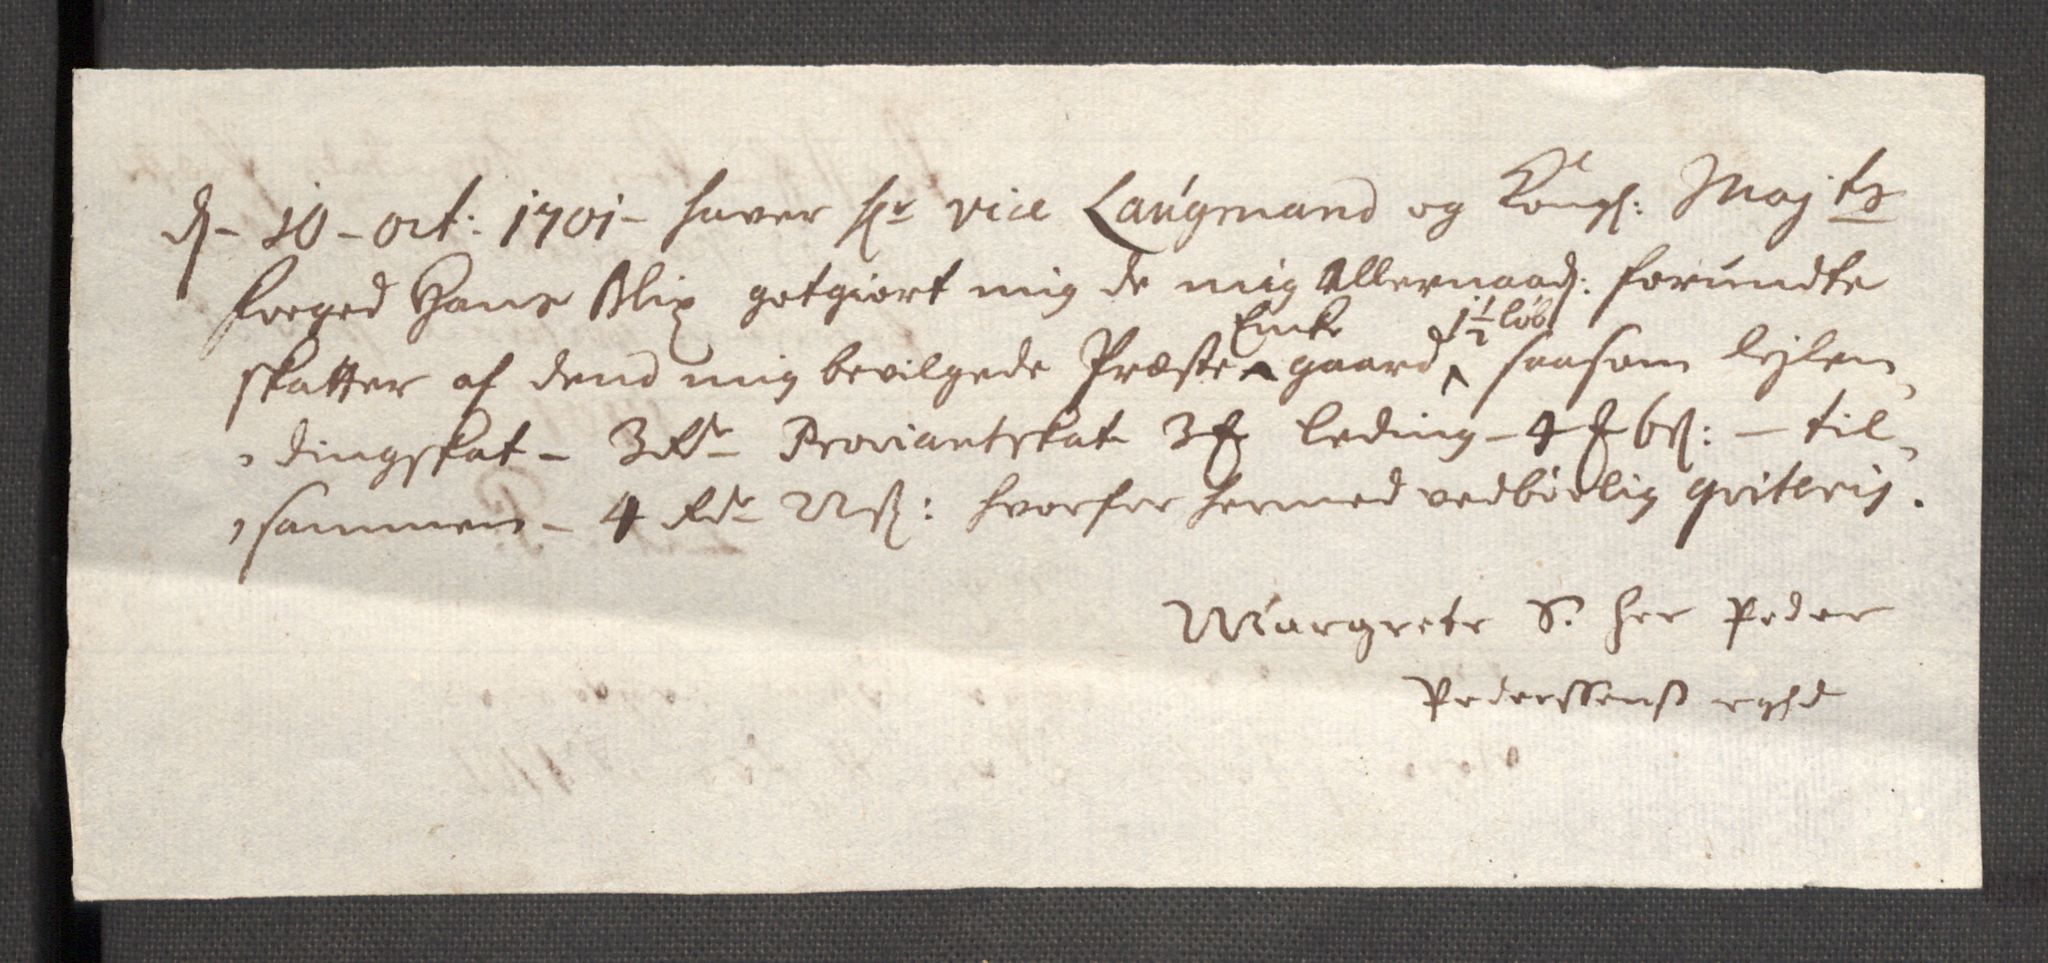 d. 10 oct: 1701 haver hr vice Laugmand og Kongl: Maj ts
foeged Hans Blix gotgiort mig de mig Allernaad: forundte
skatter af dend mig bevilgede Præste Encke gaard 1½ løb saasom lejlen,
,dingskat - 3 Rdr Proviantskat 3 leding - 4 6ß: - til,
,sammen - 4 Rdr 22ß: hvorfor hermed vedbørlig qviteris.
Margrete S. her Peder
Pederssenß